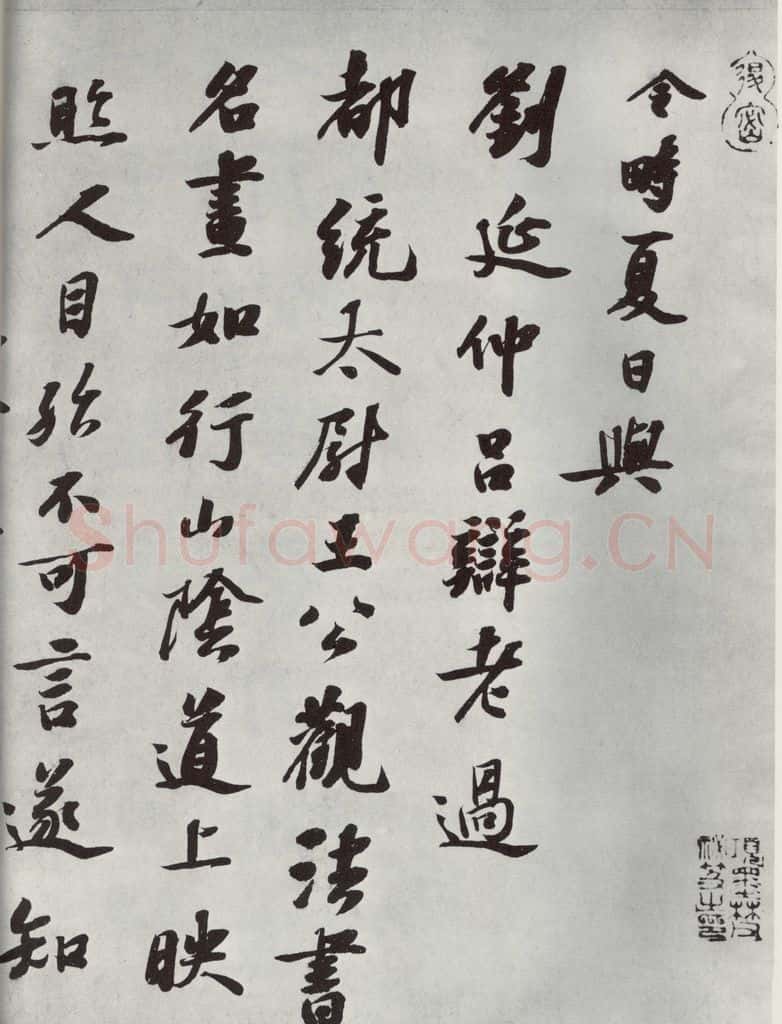 退密
令畤夏日與
劉延仲呂辯老過
都統太尉王公觀法書
名畫如行山陰道上映
照人目殆不可言遂知
項墨林父
秘笈之印
Shufawang.CN